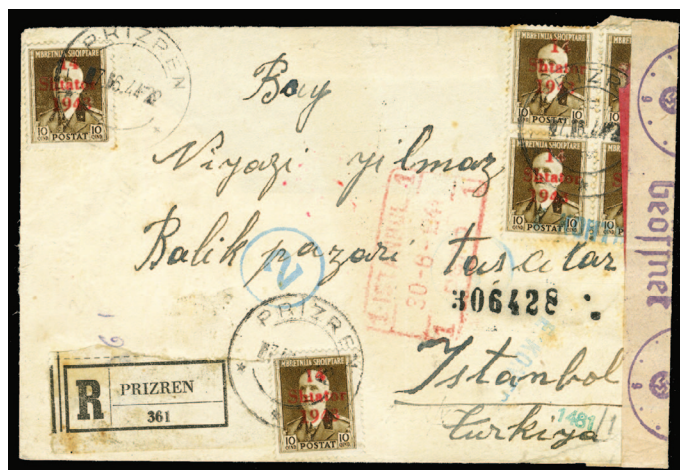 PRIZREN
MBRETNIJA SHQIPTARE
14
Shtator
1943
10 POSTAT 10
MBRETNIJA SHQIPTARE
14
Shtator
1943
10 POSTAT 10
MBRETNIJA SHQIPTARE
14
Shtator
1943
10 POSTAT 10
Bay
Niyazi yilmaz
Balik pazari tascilar
ISTANBUL
2
306428
Istanbol
Turkiya
PRIZREN
MBRETNIJA SHQIPTARE
14
Shtator
1943
10 POSTAT 10
R PRIZREN
361
1481/1
Geöffnet